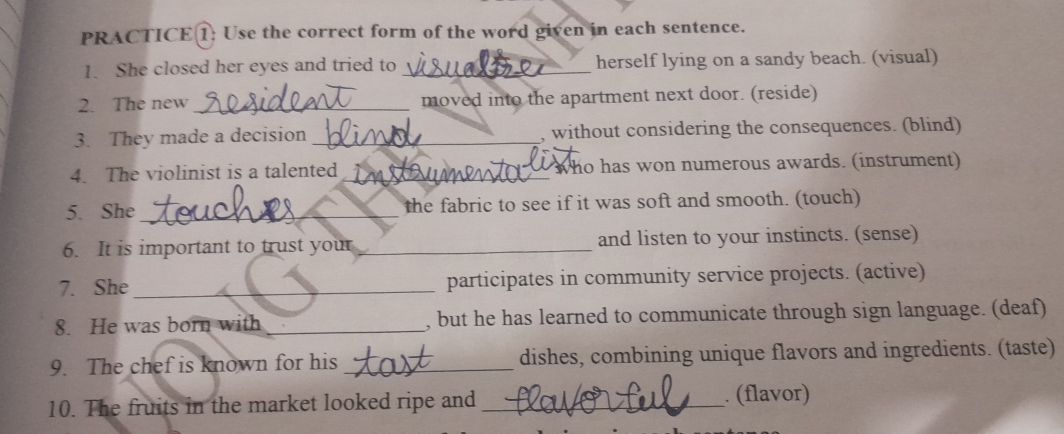 PRACTICE 1: Use the correct form of the word given in each sentence.
1. She closed her eyes and tried to visualize herself lying on a sandy beach. (visual)
2. The new resident moved into the apartment next door. (reside)
3. They made a decision blind, without considering the consequences. (blind)
4. The violinist is a talented instrumentalist who has won numerous awards. (instrument)
5. She touches the fabric to see if it was soft and smooth. (touch)
6. It is important to trust your ____ and listen to your instincts. (sense)
7. She ____ participates in community service projects. (active)
8. He was born with ____, but he has learned to communicate through sign language. (deaf)
9. The chef is known for his tast dishes, combining unique flavors and ingredients. (taste)
10. The fruits in the market looked ripe and flavorful. (flavor)